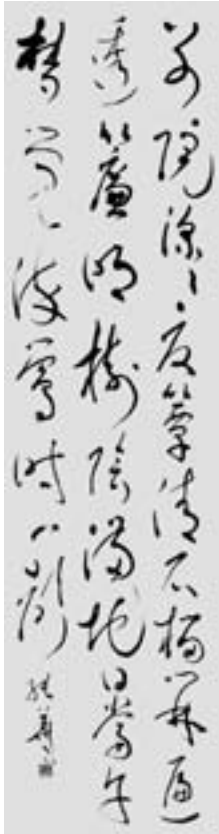 別院深深夏簟清石榴開遍
透簾明樹陰滿地日當午
夢覺流鶯時一聲